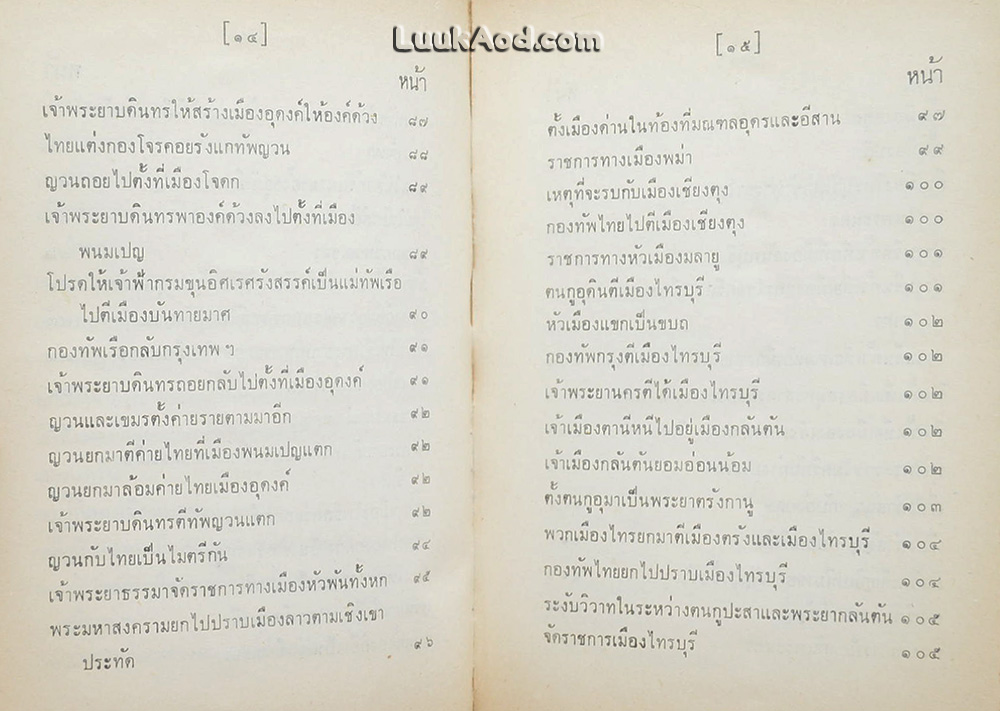 LuukAod.com
[๑๔]
หน้า
เจ้าพระยาบดินทรให้สร้างเมืองอุดงค์ให้องค์ด้วง ๘๗
ไทยแต่งกองโจรคอยรังแกทัพญวน ๘๘
ญวนถอยไปตั้งที่เมืองโจดก ๘๙
เจ้าพระยาบดินทรพาองค์ด้วงลงไปตั้งที่เมือง
พนมเปญ ๘๙
โปรดให้เจ้าฟ้ากรมขุนอิศเรศรังสรรค์เป็นแม่ทัพเรือ
ไปตีเมืองบันทายมาศ ๙๐
กองทัพเรือกลับกรุงเทพ ฯ ๙๑
เจ้าพระยาบดินทรถอยกลับไปตั้งที่เมืองอุดงค์ ๙๑
ญวนและเขมรตั้งค่ายรายตามมาอีก ๙๒
ญวนยกมาตีค่ายไทยที่เมืองพนมเปญแตก ๙๒
ญวนยกมาล้อมค่ายไทยเมืองอุดงค์ ๙๒
เจ้าพระยาบดินทรตีทัพญวนแตก ๙๒
ญวนกับไทยเป็นไมตรีกัน ๙๔
เจ้าพระยาธรรมาจัดราชการทางเมืองหัวพันทั้งหก ๙๕
พระมหาสงครามยกไปปราบเมืองลาวตามเชิงเขา
ประทัด ๙๖
[๑๕]
หน้า
ตั้งเมืองด่านในท้องที่มณฑลอุดรและอีสาน ๙๗
ราชการทางเมืองพม่า ๙๙
เหตุที่จะรบกับเมืองเชียงตุง ๑๐๐
กองทัพไทยไปตีเมืองเชียงตุง ๑๐๐
ราชการทางหัวเมืองมลายู ๑๐๑
ตนกูอุดินตีเมืองไทรบุรี ๑๐๑
หัวเมืองแขกเป็นขบถ ๑๐๒
กองทัพกรุงตีเมืองไทรบุรี ๑๐๒
เจ้าพระยานครตีได้เมืองไทรบุรี ๑๐๒
เจ้าเมืองตานีหนีไปอยู่เมืองกลันตัน ๑๐๒
เจ้าเมืองกลันตันยอมอ่อนน้อม ๑๐๒
ตั้งตนกูอุมาเป็นพระยาตรังกานู ๑๐๓
พวกเมืองไทรยกมาตีเมืองตรังและเมืองไทรบุรี ๑๐๔
กองทัพไทยยกไปปราบเมืองไทรบุรี ๑๐๔
ระงับวิวาทในระหว่างตนกูปะสาและพระยากลันตัน ๑๐๕
จัดราชการเมืองไทรบุรี ๑๐๕